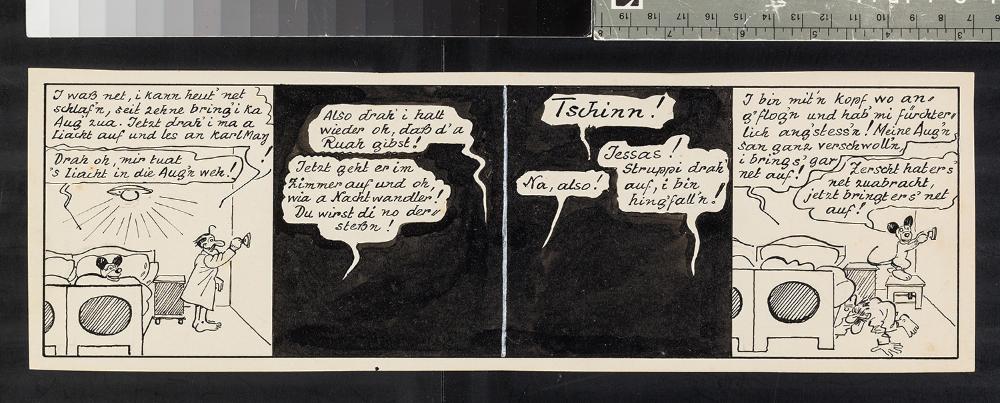 I waß net, i kann heut' net
schlaf'n, seit zehne bring' i ka
Aug' zua. Jetzt drah' i ma a
Liacht auf und les an Karl May
!
Drah oh, mir tuat
's Liacht in die Aug'n weh!
Also drah' i halt
wieder oh, daß d' a
Ruah gibst!
Jetzt geht er im
Zimmer auf und oh,
wia a Nachtwandler!
Du wirst di no der-
steßn!
Tschinn!
Jessas!
Struppi drah'
auf, i bin
hing'fall'n!
Na, also!
I bin mit'n Kopf wo an-
g'flog'n und hab' mi fürchter-
lich angstess'n! Meine Aug'n
san ganz verschwoll'n,
i bring s' gar
net auf!
Zerscht hat er s
net zuabracht,
jetzt bringt er s' net
auf!
19 18 17 16 15 14 13 12 11 10 9 8 7